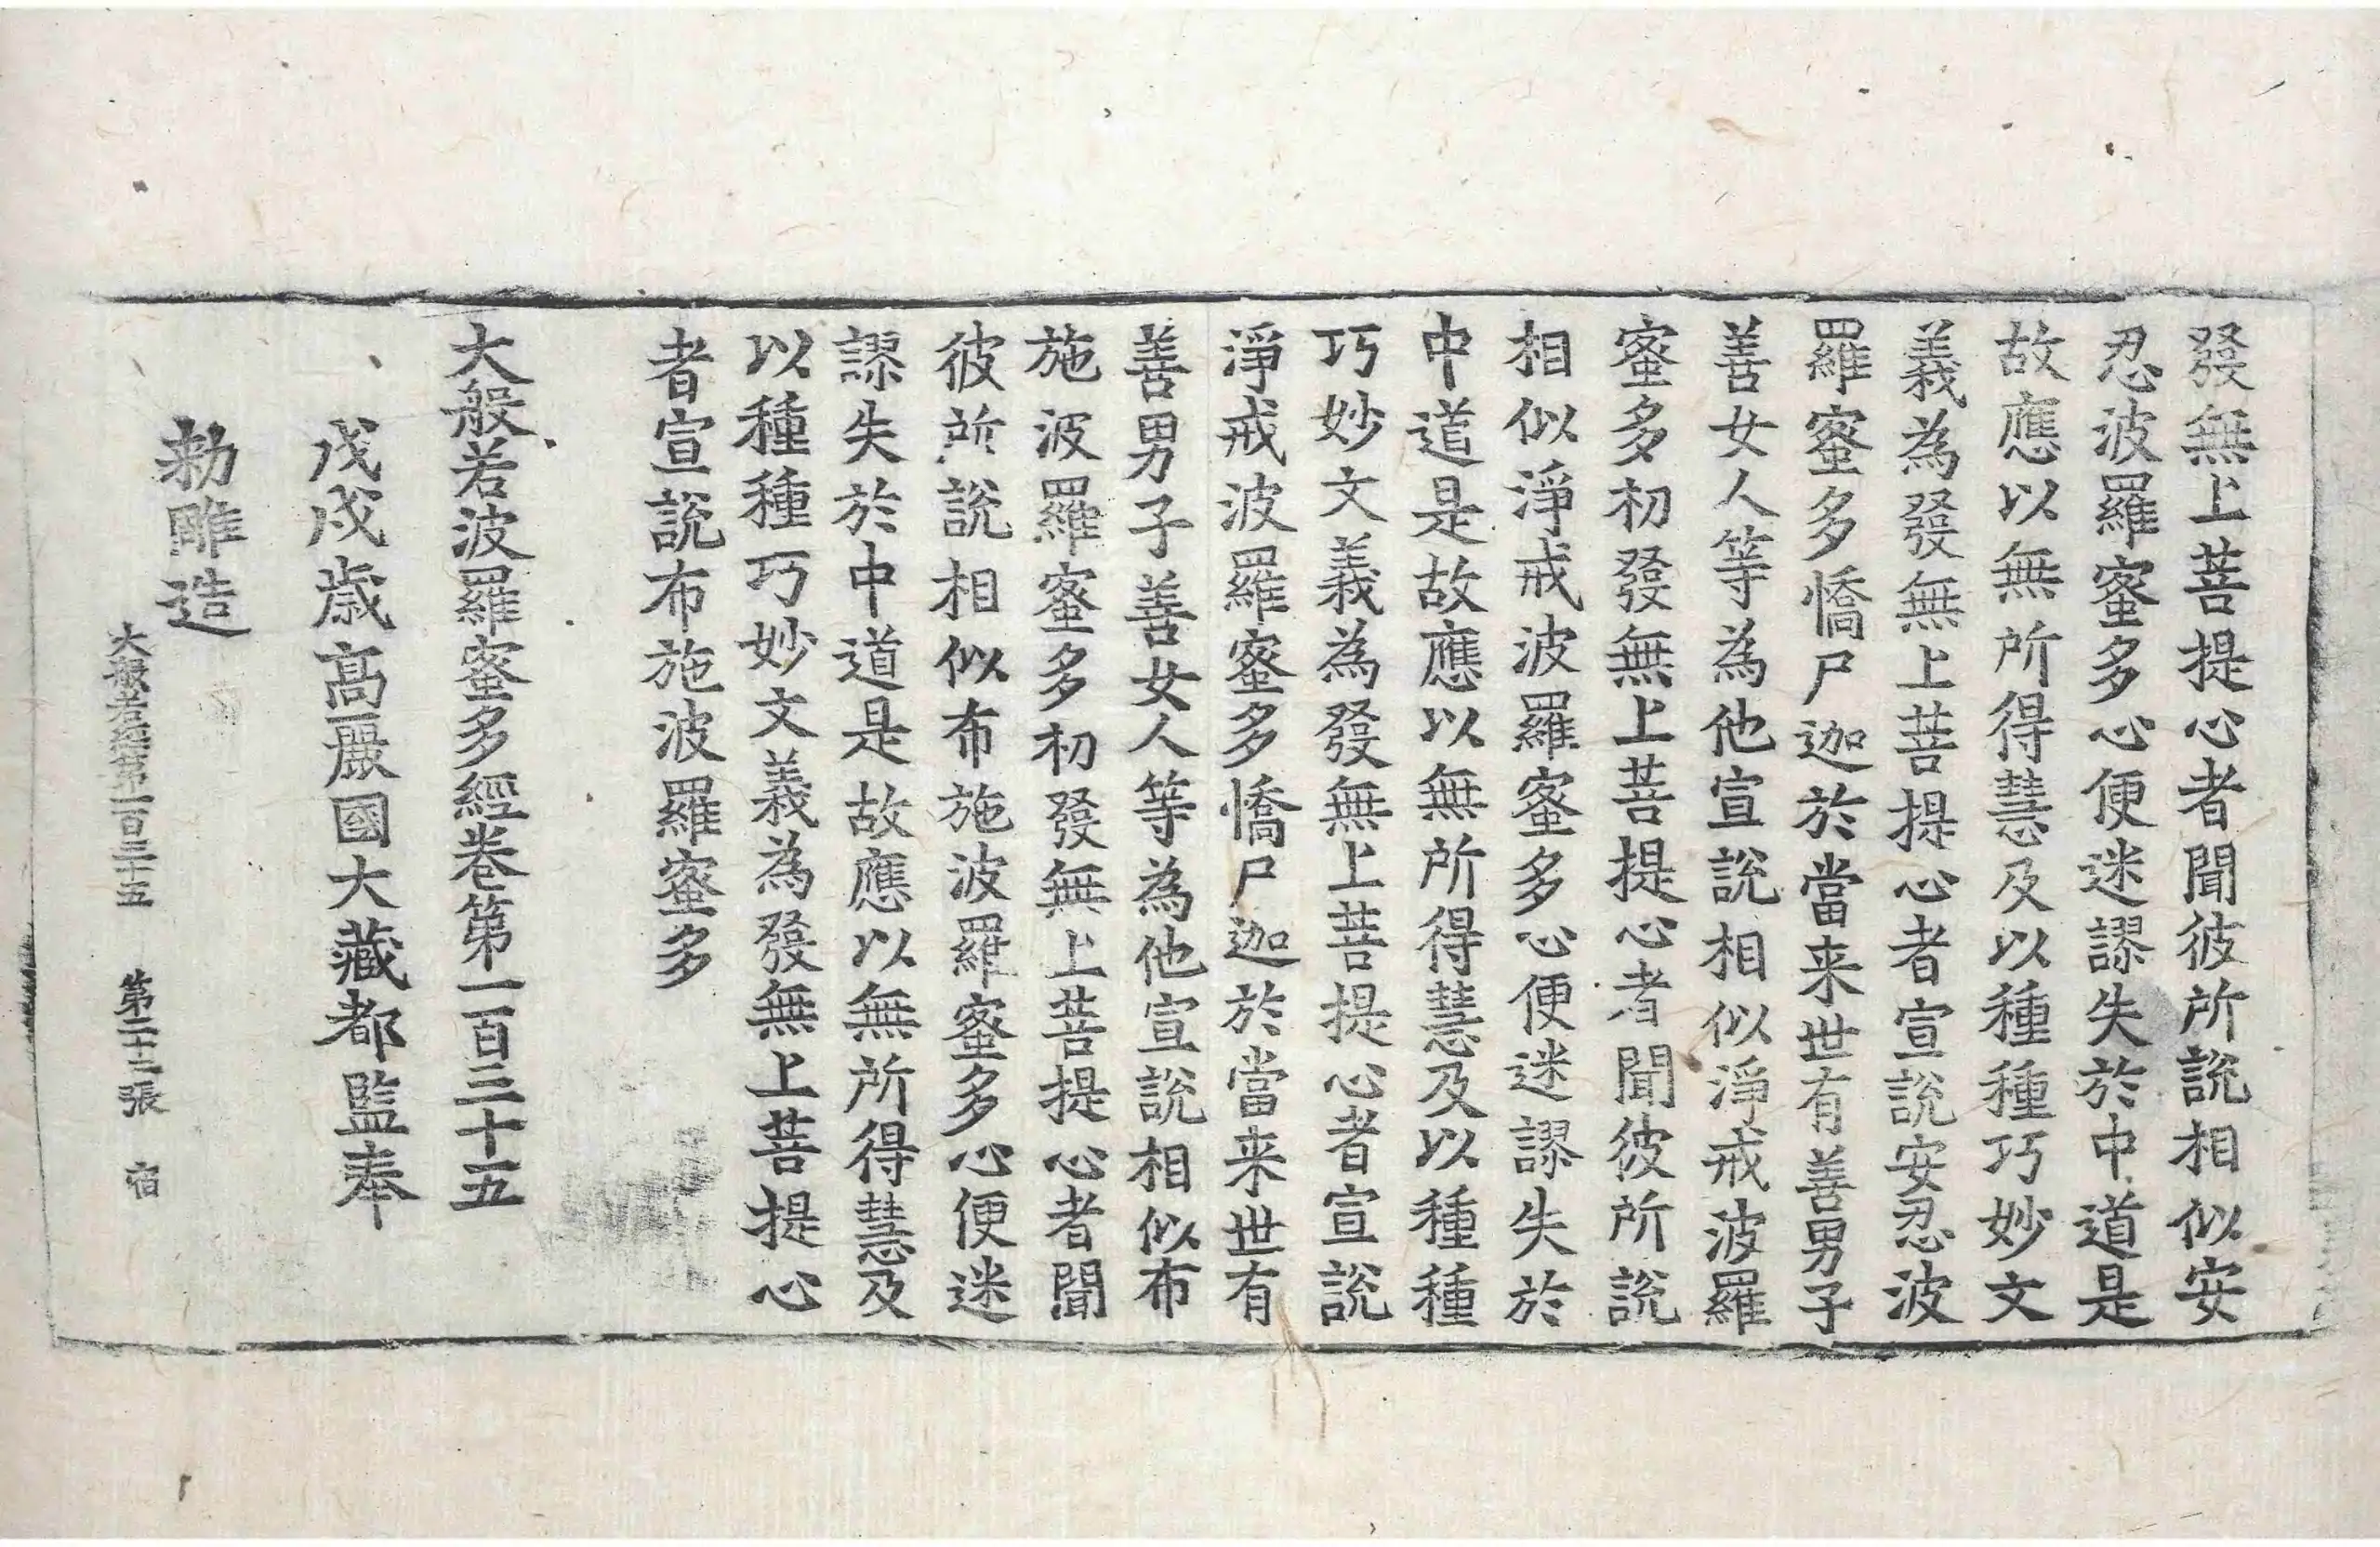 發無上菩提心者聞彼所說相似安
忍波羅蜜多心便迷謬失於中道是
故應以無所得慧及以種種巧妙文
義為發無上菩提心者宣說安忍波
羅蜜多憍尸迦於當来世有善男子
善女人等為他宣說相似淨戒波羅
蜜多初發無上菩提心者聞彼所說
相似淨戒波羅蜜多心便迷謬失於
中道是故應以無所得慧及以種種
巧妙文義為發無上菩提心者宣說
淨戒波羅蜜多憍尸迦於當来世有
善男子善女人等為他宣說相似布
施波羅蜜多初發無上菩提心者聞
彼所說相似布施波羅蜜多心便迷
謬失於中道是故應以無所得慧及
以種種巧妙文義為發無上菩提心
者宣說布施波羅蜜多
大般若波羅蜜多經卷第一百三十五
戊戌歲高麗國大藏都監奉
勅雕造
大般若經第一百三十五 第二十三張 宿